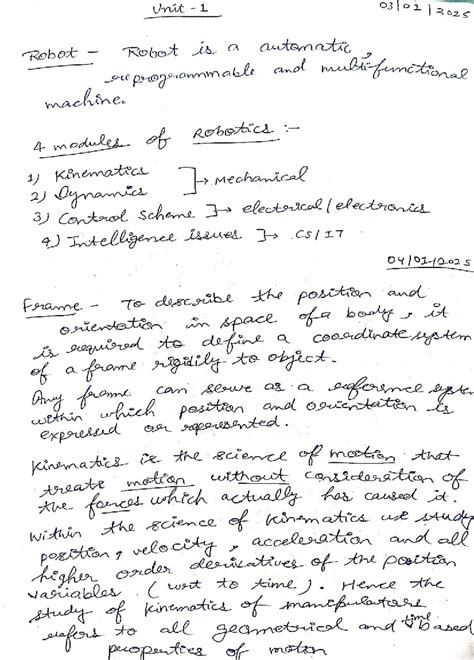 Unit - 1
03/01/2025
Robot - Robot is a automatic,
reprogrammable and multifunctional
machine.
4 modules of Robotics :-
1) Kinematics
2) Dynamics
→ Mechanical
3) Control Scheme → electrical/electronics
4) Intelligence issues → CS/IT
04/01/2025
Frame - To describe the position and
orientation in space of a body, it
is required to define a coordinate system
of a frame rigidily to object.
Any frame can serve as a reference system
within which position and orientation is
expressed or represented.
Kinematics is the science of motion that
treate motion without consideration of
the forces which actually has caused it.
Within the science of kinematics we study
position, velocity, acceleration and all
higher order derivatives of the position
variables (wrt to time). Hence the
study of kinematics of manipulators
refers to all geometrical and time based
properties of motion